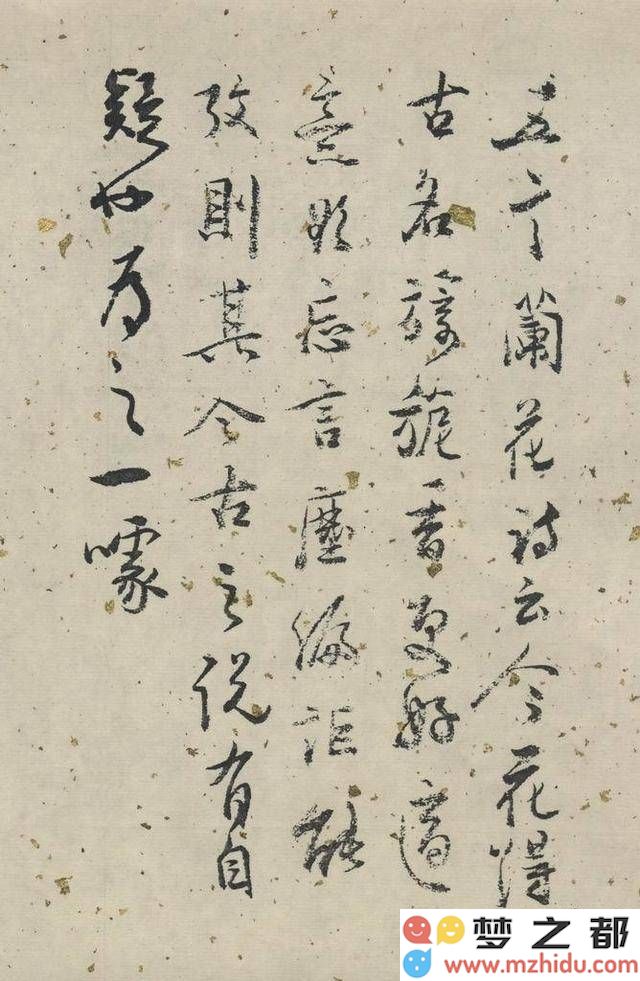 至于蘭花詩云今花得
古名旖旎香更好適
意欲忘言塵編詎能
攷則其今古之說有自
疑也為之一噱
梦之都
www.mzhidu.com